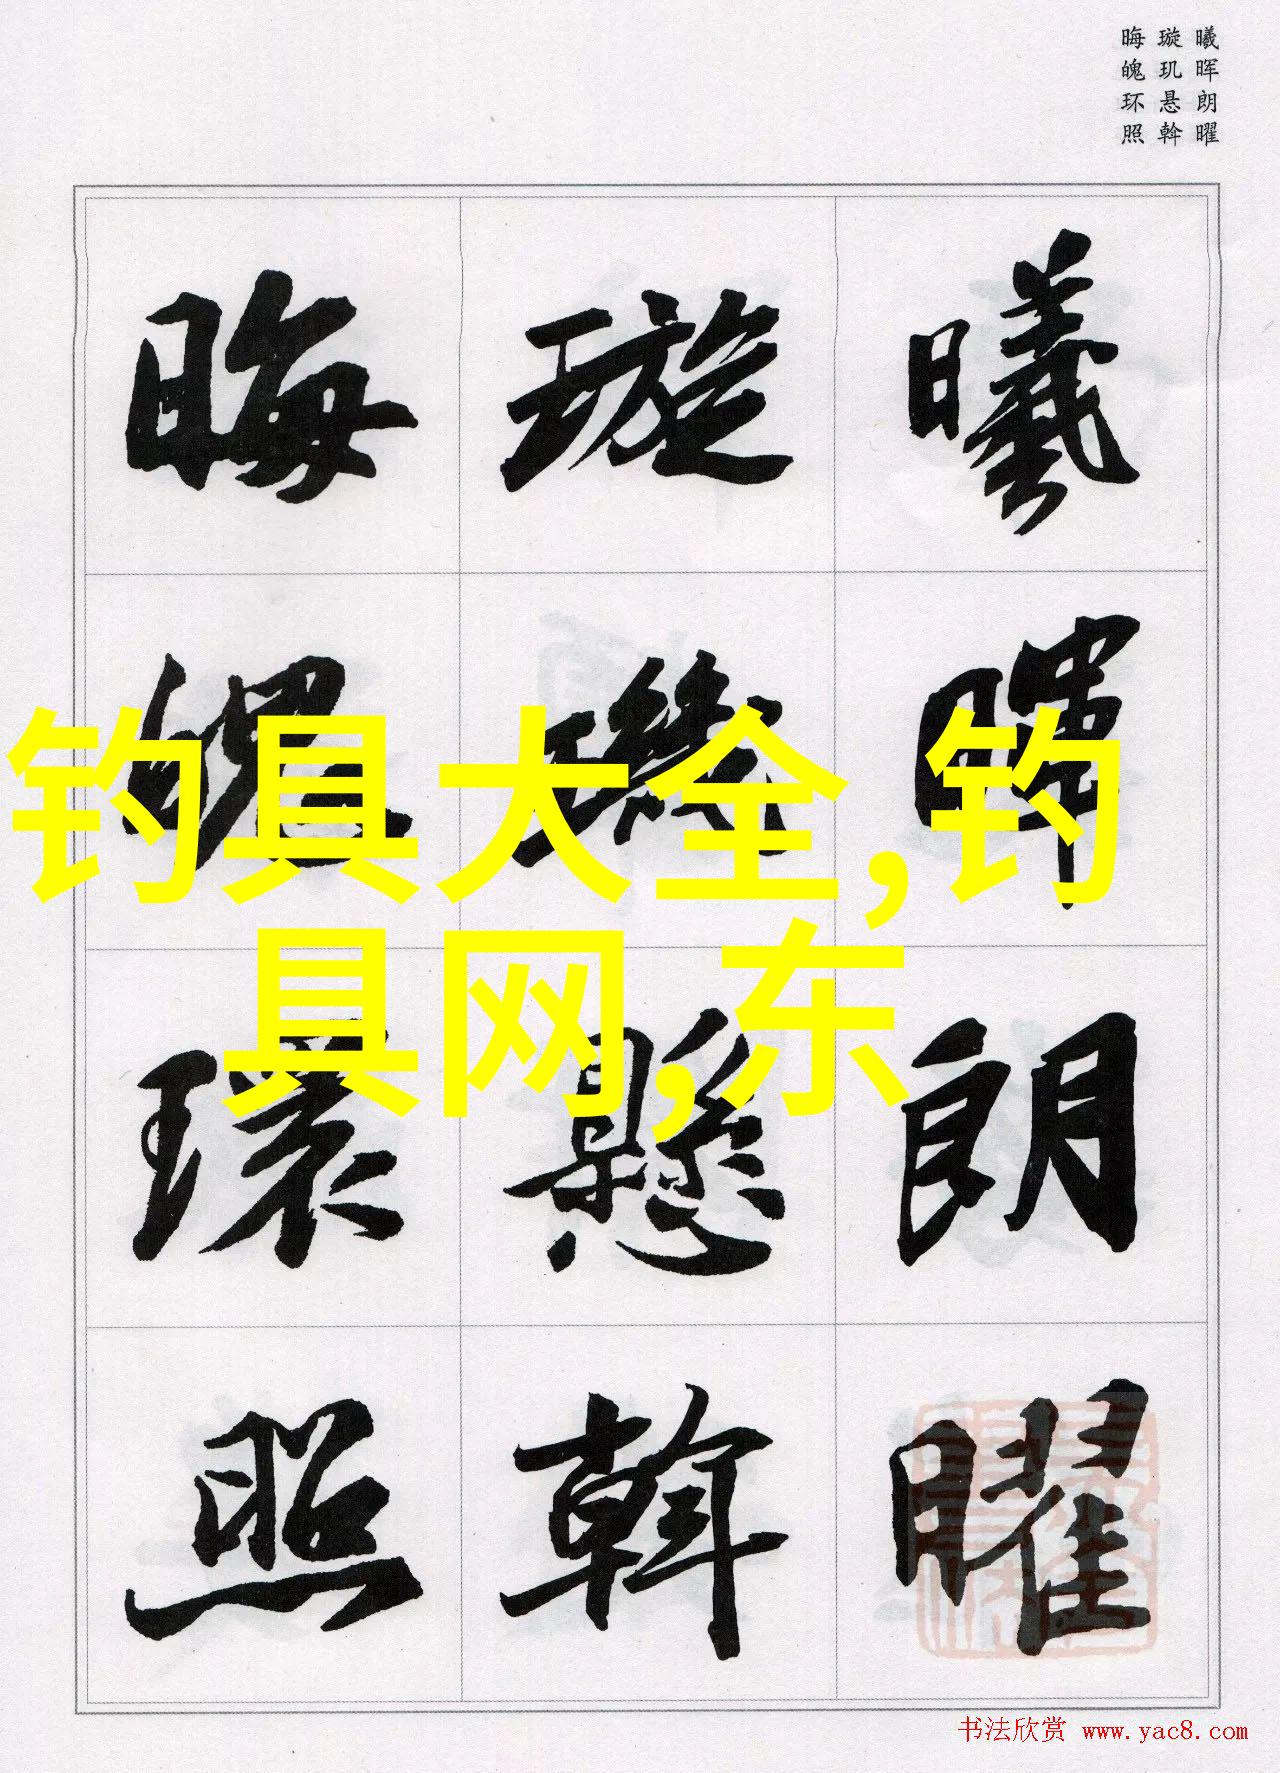 曦晖朗曜
璇玑悬斡
晦魄环照
曦暉朗曜
璇璣懸斡
晦魄環照
钓具大全,钓
具网,东
书法欣赏 www.yac8.com